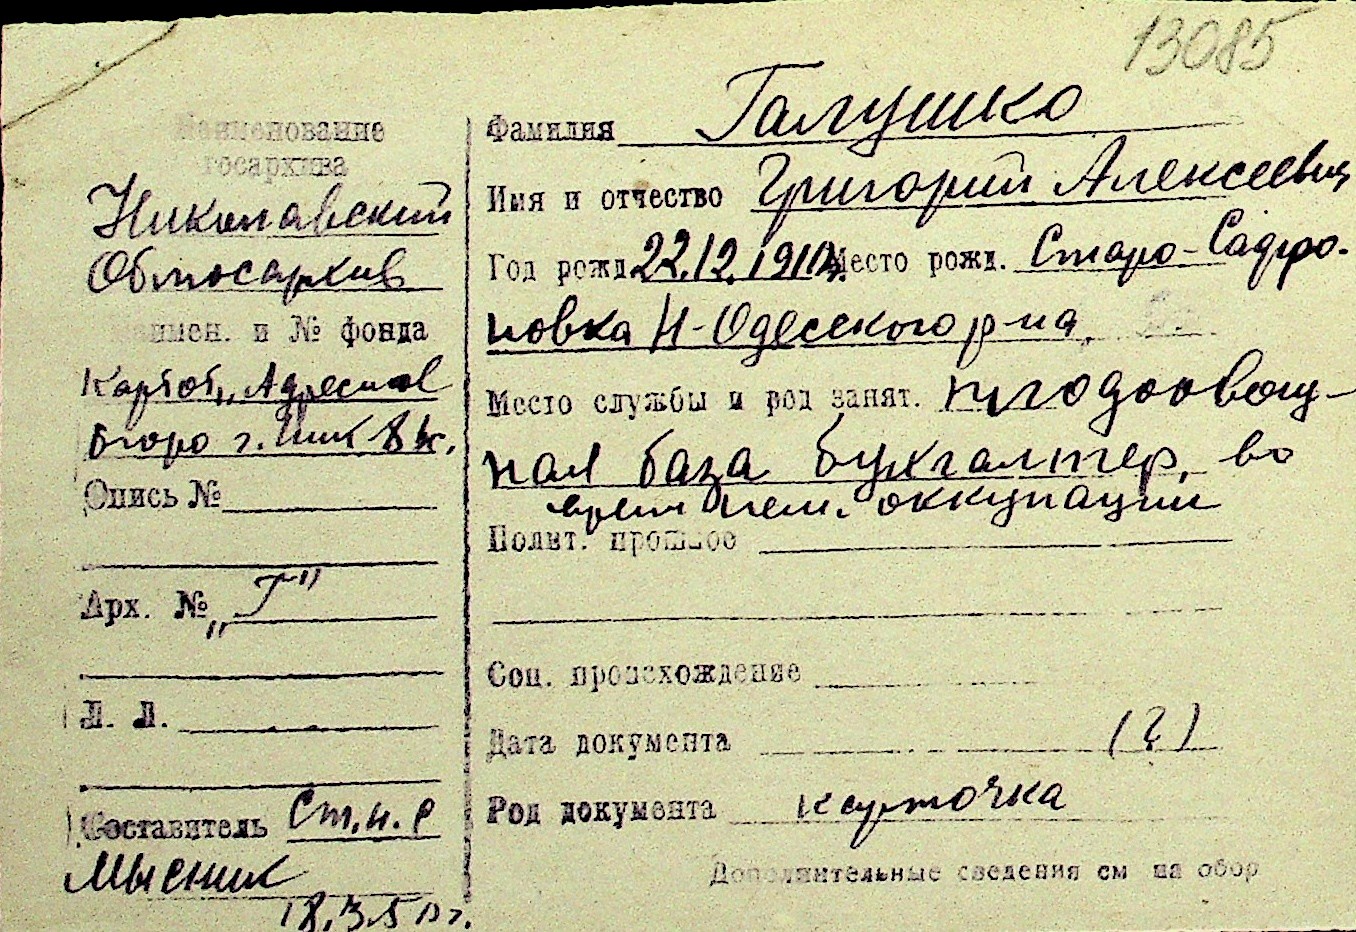 13085
Наименование
госархива
Николаевский
Облгосархив
Наимен. и № фонда
Картот. „Адресное
бюро г. Ник
Опись №
Арх. № „Г"
Л. Л.
Составитель Ст.н.с
Мысник
18.3.50 г.
Фамилия Галушко
Имя и отчество Григорий Алексеевич
Год рожд. 22.12.1910 Место рожд. Старо-Сафро-
новка Н-Одесского р-на,
Место службы и род занят. плодоовощ-
ная база бухгалтер, во
время нем. оккупации
Полит. прошлое
Соц. происхождение
Дата документа (?)
Род документа карточка
Дополнительные сведения см на обор